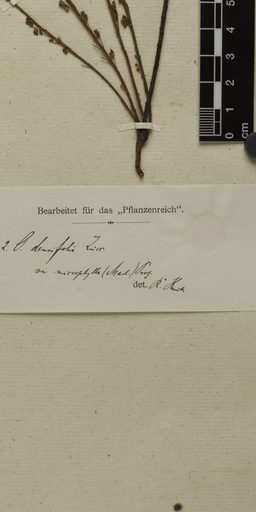 5
4
3
2
1
0
cm
Bearbeitet für das „Pflanzenreich“.
2 O. densifolia Zucc.
var microphylla (Mart.) Prog.
det. R. Knuth